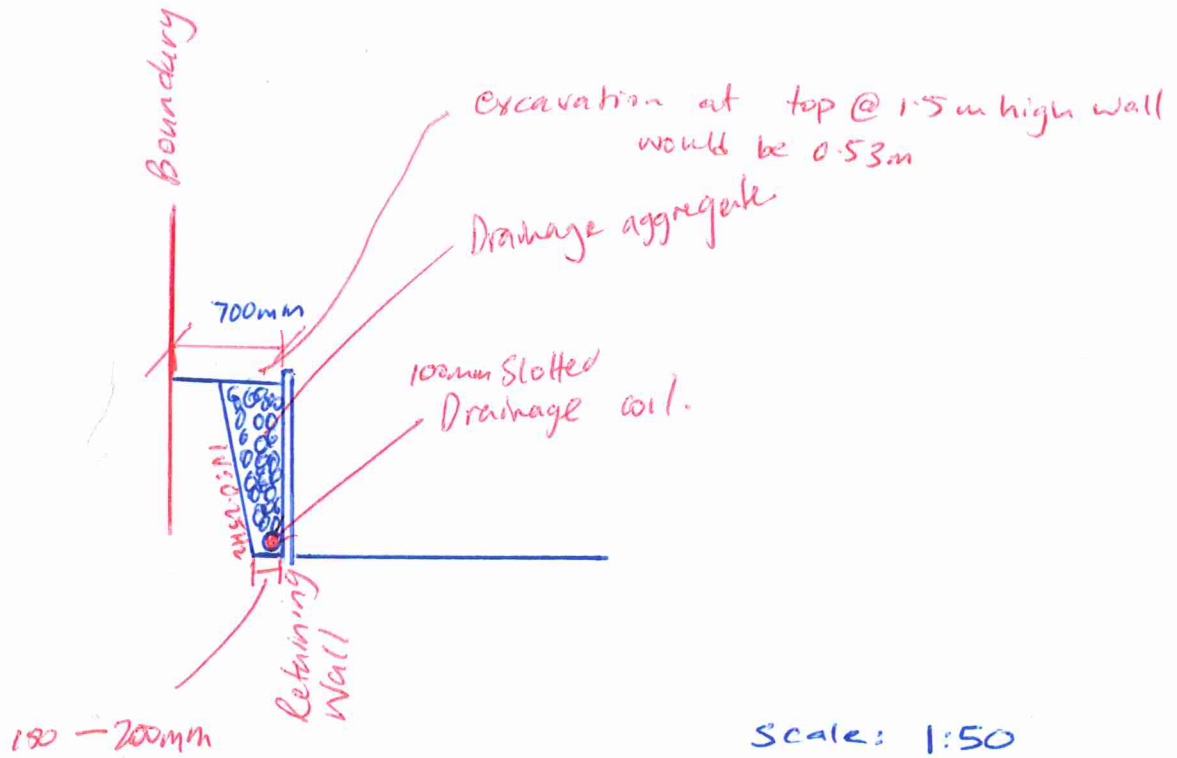 Boundary
excavation at top @ 1.5m high wall
would be 0.53m
Drainage aggregate
700mm
100mm Slotted
Drainage coil.
Retaining
Wall
200mm
Scale: 1:50